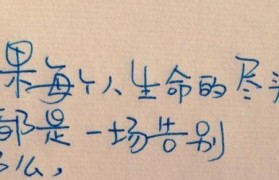 果每个人生命的尽头
都是一场告别
么,